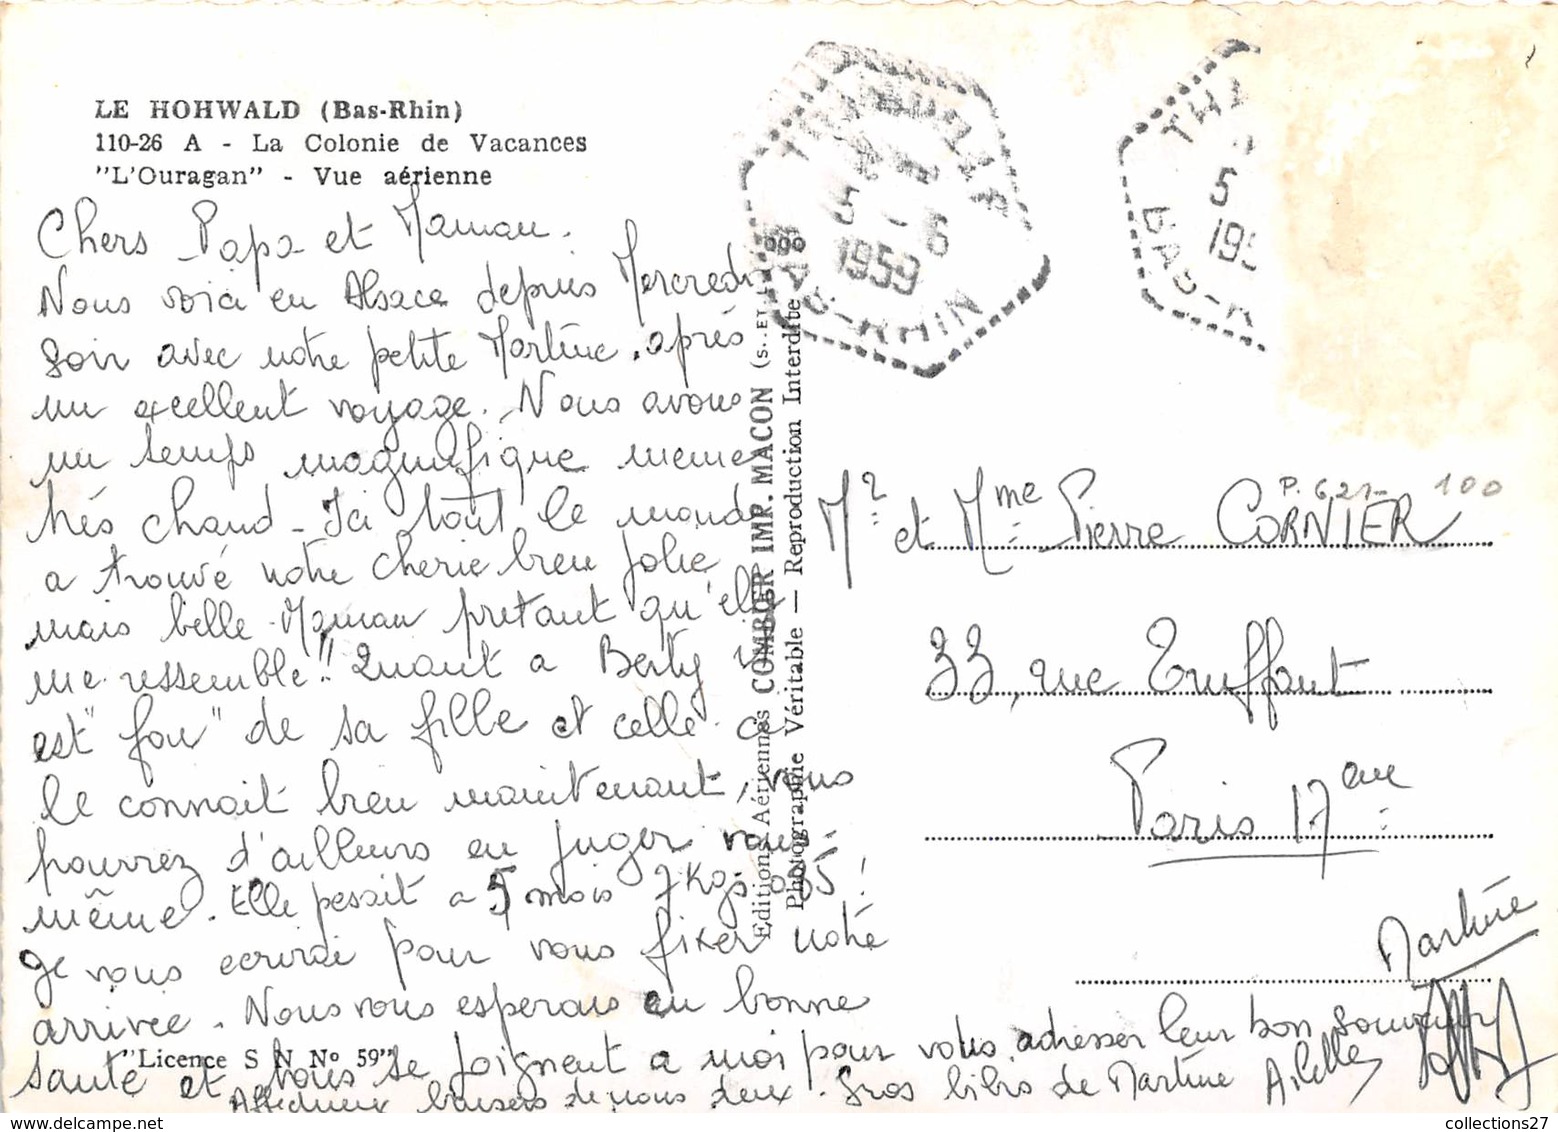 LE HOHWALD (Bas-Rhin)
110-26 A - La Colonie de Vacances
"L'Ouragan" - Vue aérienne
Chers Papa et Maman.
Nous voici en Alsace depuis Mercredi
soir avec notre petite Martine, après
un excellent voyage. Nous avons
un temps magnifique meme
très chaud - Ici tout le monde
a trouvé notre cherie bien jolie
mais belle Maman pretant qu'elle
me ressemble!! Quant a Berty il
est "fou" de sa fille et celle ci
le connait bien maintenant, vous
pourrez d'ailleurs en juger vous
même. Elle pesait a 5 mois 7Kgs 095!
Je vous ecrirai pour vous fixer notre
arrivee. Nous vous esperons en bonne
santé et tous se joignent a moi pour vous adresser leur bon souvenir
Affectueux baisers de nous deux. Gros bibis de Martine
"Licence S N N° 59"
Editions Aériennes COMBIER IMP. MACON (S.-ET-L.)
Photographie Véritable — Reproduction Interdite
THANVILLE
5 - 6
1959
BAS-RHIN
TH
5
195
BAS-R
P. 621- 100
Mr et Mme Pierre CORNIER
33, rue Truffaut
Paris 17eme
Martine
collections27